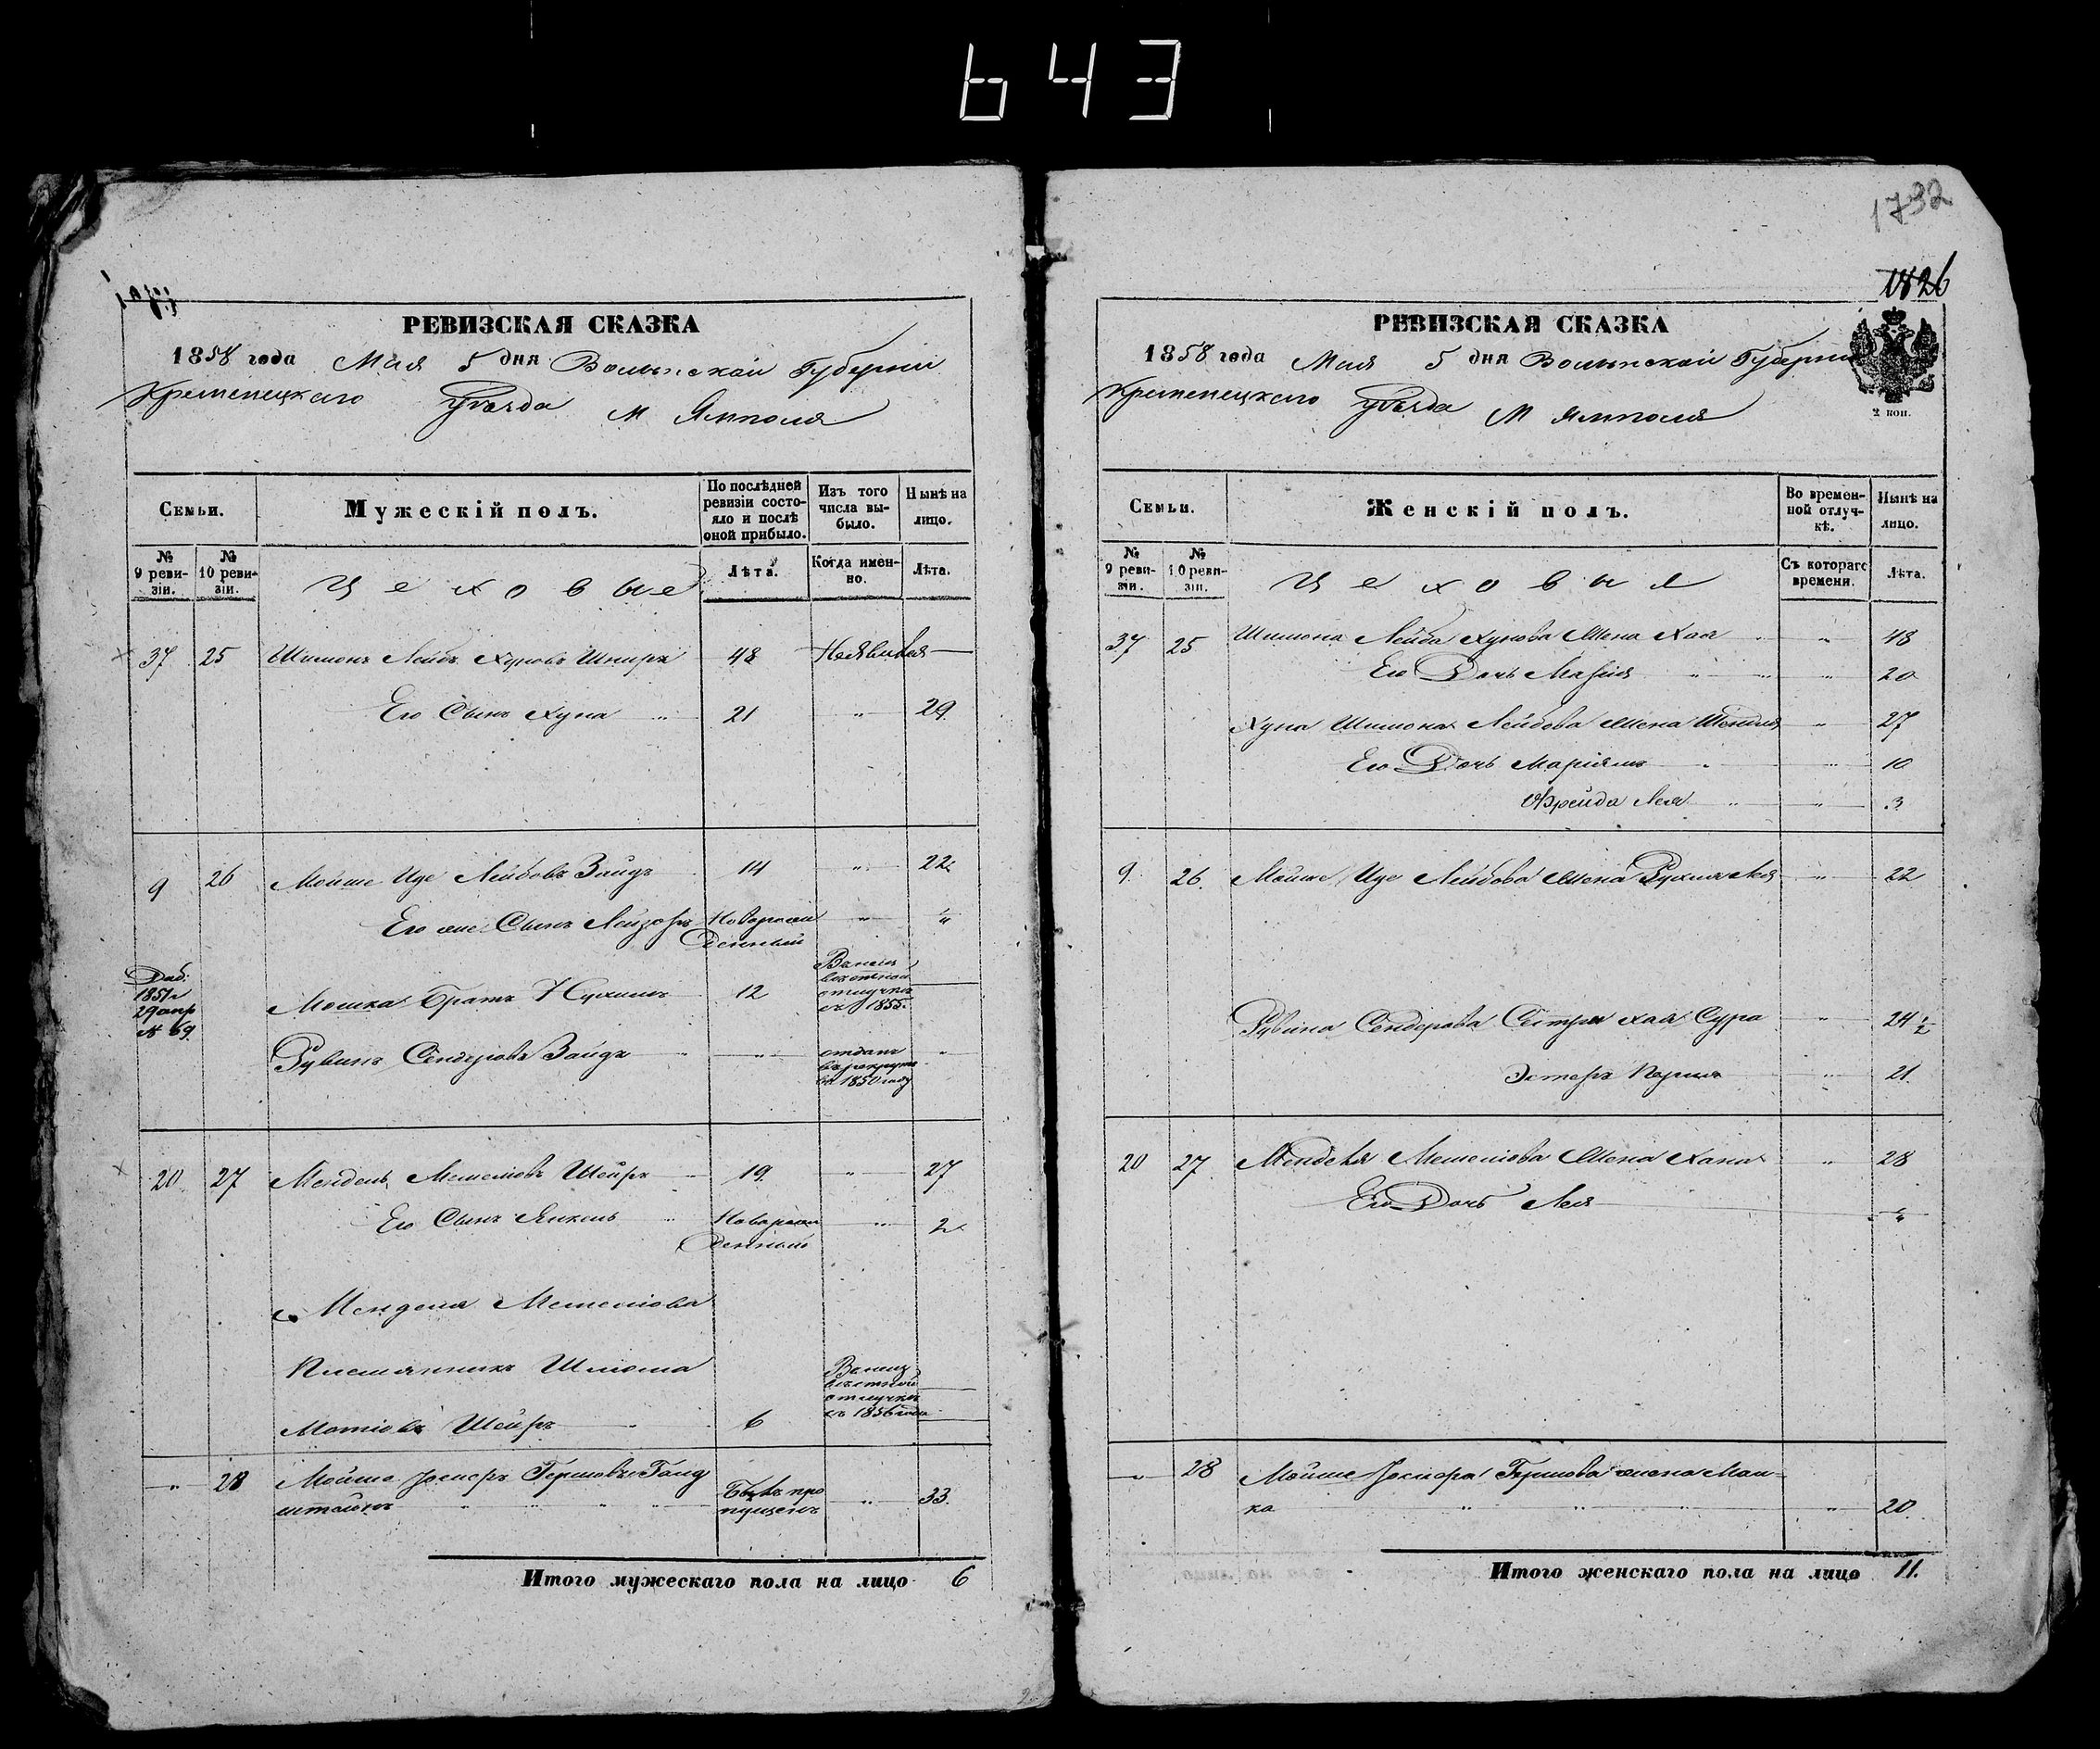 643
1792
1826
РЕВИЗСКАЯ СКАЗКА
1858 года Мая 5 дня Волынской Губерніи
Кременецкаго Уѣзда М Ямполя
Семьи.
Мужескій полъ.
По послѣдней ревизіи состояло и послѣ оной прибыло.
Изъ того числа выбыло.
Нынѣ на лицо.
№ 9 ревизіи.
№ 10 ревизіи.
Цеховые
Лѣта.
Когда именно.
Лѣта.
37 25 Шимонъ Лейбъ Хуновъ Шпиръ 48 Неявился
Его Сынъ Хуна " 21 " 29
9 26 Мойше Иде Лейбовъ Зайдъ 14 " 22
Его же Сынъ Лейзоръ Новорож " "
денный
Доб:
1851 г
29 апр
№ 69
Мошка Братъ Нухимъ 12
отлучкѣ
съ 1855.
Рувинъ Сендеровъ Зайдъ " " отданъ "
въ рекруты
въ 1850 году
20 27 Мендель Мешелювъ Шейръ 19 " 27
Его Сынъ Янкель " Новорож " 2
денный
Менделя Мешелюва
Племянникъ Шлиома
Мотіовъ Шейръ 6
отлучкѣ
съ 1856 года
" 28 Мойше Іосперъ Гершовъ Голд Былъ про " 33.
штейнъ " " " " пущенъ
Итого мужескаго пола на лицо 6
РЕВИЗСКАЯ СКАЗКА
1858 года Мая 5 дня Волынской Губерніи
Кременецкаго Уѣзда М Ямполя
2 коп.
Семьи.
Женскій полъ.
Во временной отлучкѣ.
Нынѣ на лицо.
№ 9 ревизіи.
№ 10 ревизіи.
Цеховыя
Съ котораго времени.
Лѣта.
37 25 Шимона Лейба Хунова Жена Хая " " 48
Его Дочь Марія " " " 20
Хуна Шимона Лейбова Жена Шейндля " 27
Его Дочь Маріямъ " " 10
Фрейда Лея " " 3
9. 26. Мойше Иде Лейбова Жена Рухля Лея " 22
Рувина Сендерова Сестры Хая Сура " 24 ½
Эстеръ Перля " 21.
20 27. Менделя Мешелюва Жена Хана " 28
Его Дочь Лея "
" 28 Мойше Іоспера Гершова жена Мал-
ка " " " " 20.
Итого женскаго пола на лицо 11.